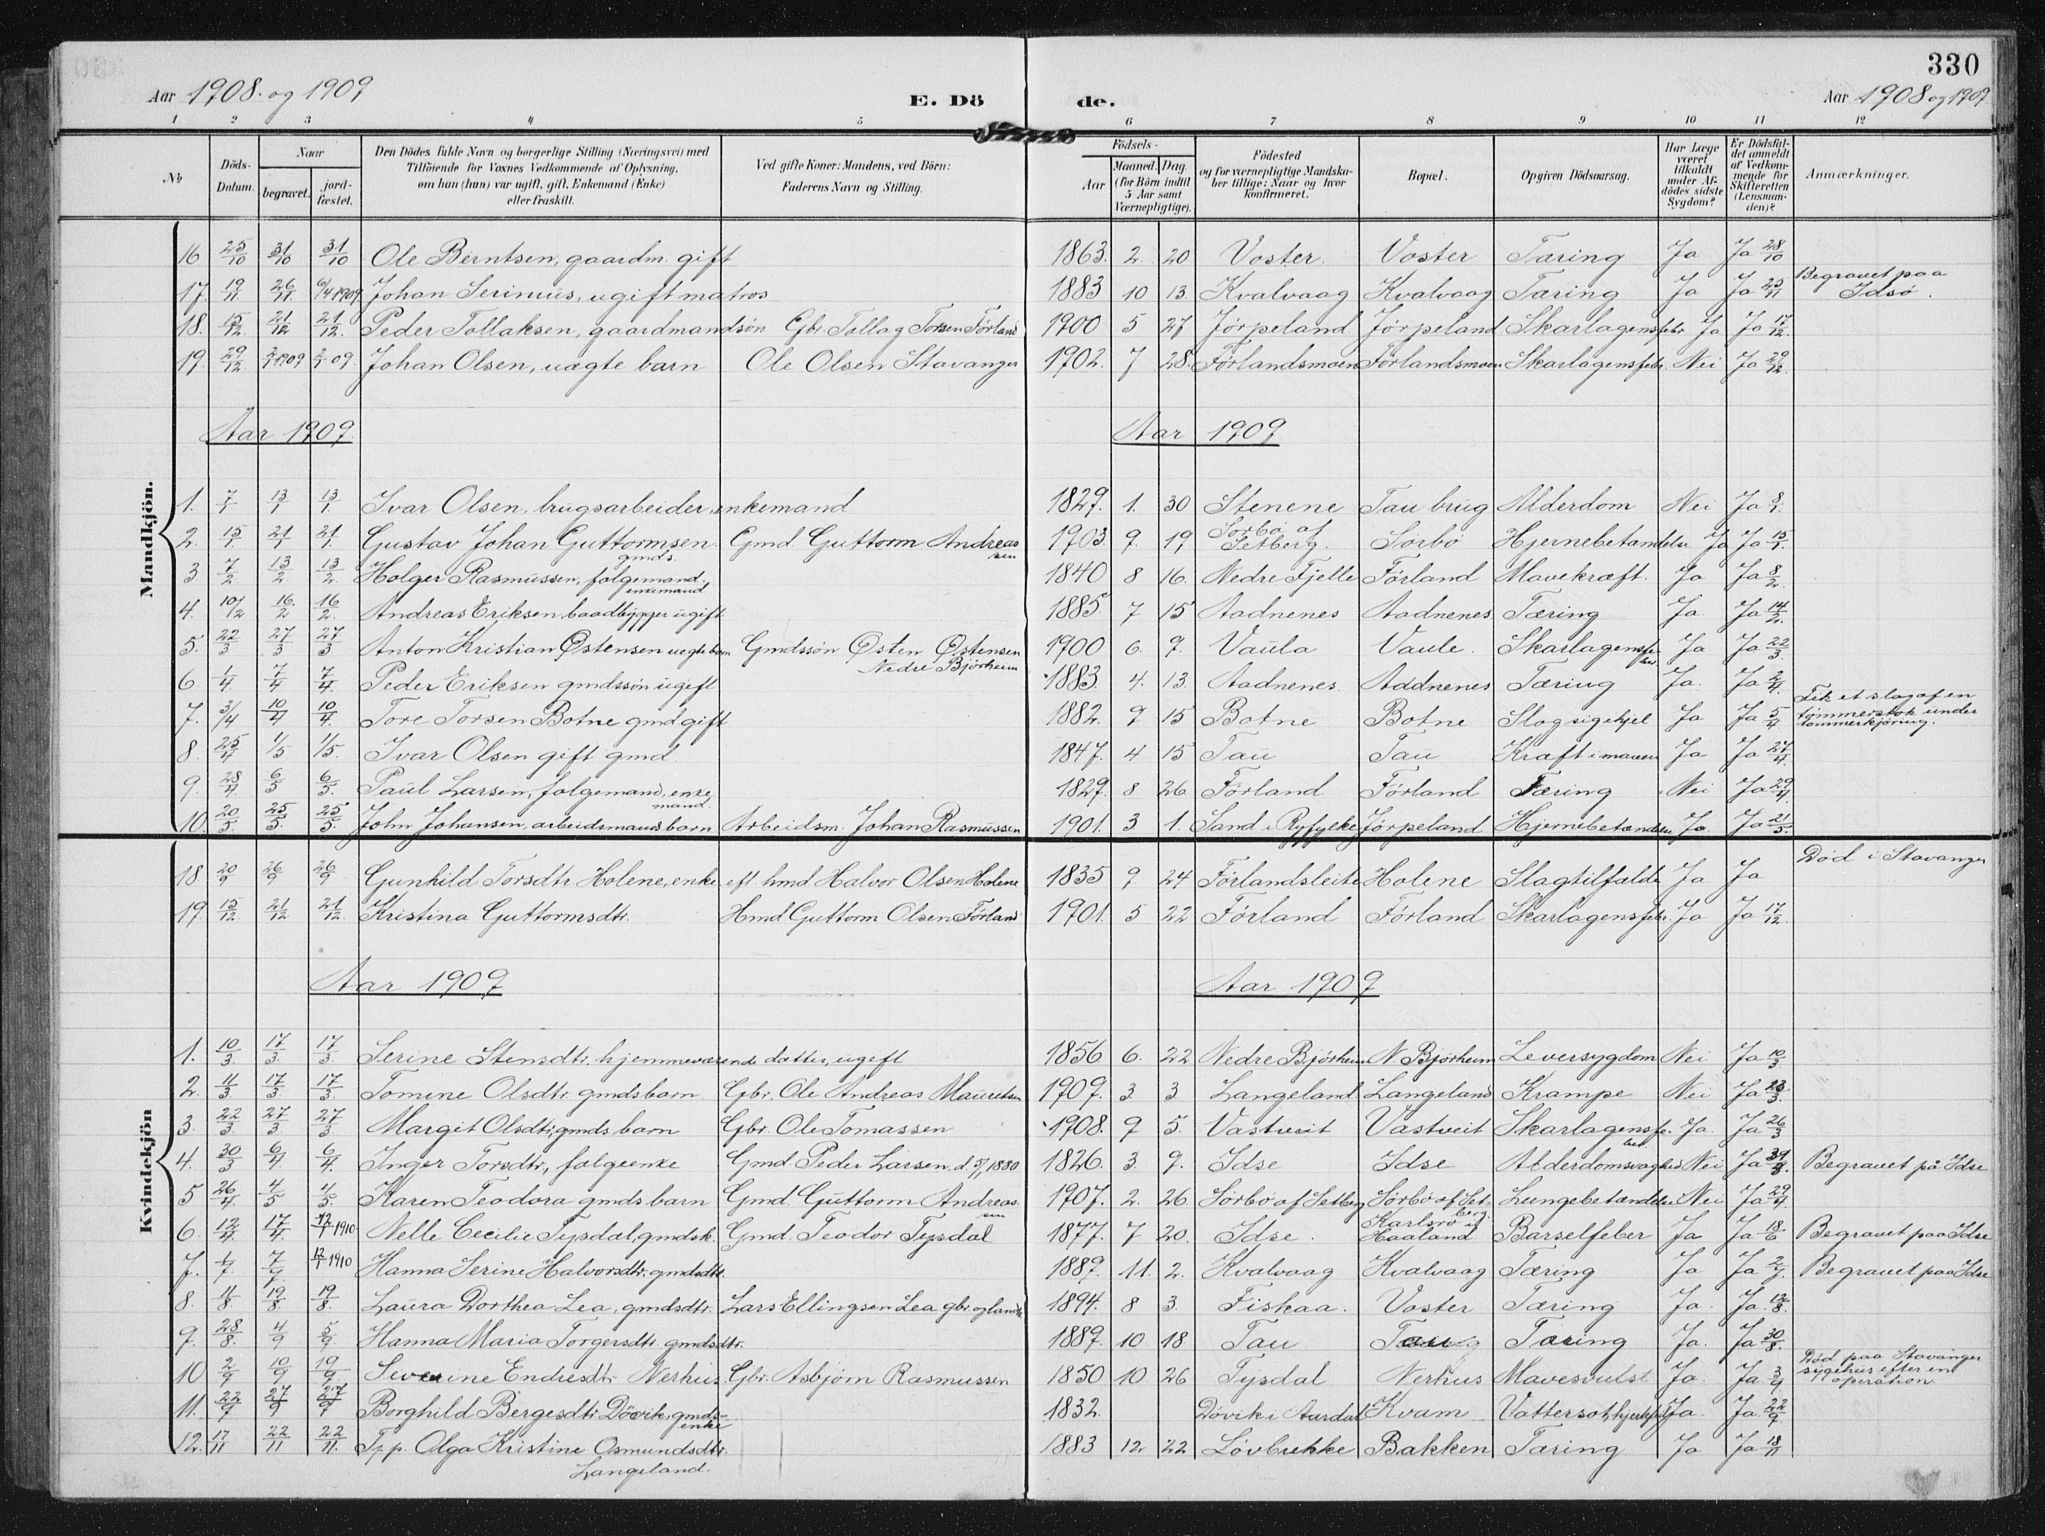 330
Aar 1908. og 1909
E. Dö de.
Aar 1908 og 1909
1 2 3 4 5 6 7 8 9 10 11 12
No
Döds-Datum.
Naar
begravet.
jord-fæstet.
Den Dödes fulde Navn og borgerlige Stilling (Næringsvei) med
Tilföiende for Voxnes Vedkommende af Oplysning,
om han (hun) var ugift, gift, Enkemand (Enke)
eller fraskilt.
Ved gifte Koner: Mandens, ved Börn:
Faderens Navn og Stilling.
Födsels-
Aar
Maaned. Dag.
(for Börn indtil
5 Aar samt
Værnepligtige).
Födested
og for værnepligtige Mandska-
ber tillige: Naar og hvor
konfirmeret.
Bopæl.
Opgiven Dödsaarsag.
Har Læge
været
tilkaldt
under Af-
dödes sidste
Sygdom?
Er Dödsfal-
det anmeldt
af Vedkom-
mende for
Skifteretten
(Lensman-
den)?
Anmærkninger.
Mandkjön.
16 25/10 31/10 31/10 Ole Berntsen, gaardm. gift 1863. 2. 20 Voster. Voster Tæring Ja Ja 28/10
17. 19/11. 26/11 6/4 1909 Johan Serinius, ugift matros 1883 10 13. Kvalvaag Kvalvaag Tæring Ja Ja 25/11 Begravet paa Idsø.
18. 15/12 21/12 21/12. Peder Tollaksen, gaardmandsön Gbr. Tollag Torsen Förland 1900 5 27 Jørpeland Jørpeland Skarlagensfebr Ja Ja 17/12.
19. 29/12 2/1 1909 2/1 09 Johan Olsen, uægte barn Ole Olsen Stavanger 1902. 7 28. Förlandsmoen Förlandsmoen Skarlagensfebr. Nei Ja 29/12.
Aar 1909. Aar 1909
1. 7/1 13/1 13/1. Ivar Olsen, brugsarbeider, enkemand 1829. 1. 30 Stenene Tau brug Alderdom Nei Ja 8/1.
2. 15/1. 21/1 21/1. Gustav Johan Guttormsen gmds. Gmd. Guttorm Andreassen 1903. 9. 19 Sørbø af Setberg. Sørbø Hjernebetændelse Ja Ja 15/1.
3 7/2. 13/2 13/2. Holger Rasmussen, folgemand, enkemand 1840 8 16. Nedre Fjelle Förland Mavekræft. Ja Ja 8/2
4. 10/2 16/2 16/2. Andreas Eriksen, baadbygger ugift 1885 7 15 Aadnenes Aadnenes Tæring Ja Ja 14/2.
5. 22/3 27/3 27/3 Anton Kristian Østensen uegte barn Gmdssön Østen Østensen Nedre Bjørheim 1900 6. 9. Vaula Vaule. Skarlagensfeber Ja Ja 22/3.
6. 1/4. 7/4 7/4. Peder Eriksen gmdssön ugift 1883. 4. 13. Aadnenes. Addnenes Tæring Ja. Ja 2/4.
7. 3/4 10/4 10/4. Tore Torsen Botne gmd gift 1882. 9 15 Botne Botne Slog sig ihjel Ja Ja 5/4 Fik et slag af en tömmerstok under tömmerkjöring.
8. 25/4 1/5 1/5. Ivar Olsen gift gmd. 1847. 4 15 Tau Tau Kræft i maven Ja Ja 27/4.
9. 28/4. 6/5 6/5. Paul Larsen, folgemand, enkemand. 1829. 8 26. Förland Förland Tæring Nei Ja 29/4.
10. 20/5. 25/5. 25/5. John Johansen, arbeidsmands barn Arbeidsm. Johan Rasmussen 1901. 3 1. Sand i Ryfylke Jørpeland Hjernebetændelse Ja Ja 21/5.
Kvindekjön
18 20/9 26/9 26/9 Gunhild Torsdtr Holene, enke eft hmd Halvor Olsen Holene 1835 9 24 Förlandsleite Holene Slagtilfælde Ja Ja Död i Stavanger
19. 15/12. 21/12 21/12 Kristina Guttormsdtr. Hmd Guttorm Olsen Förland 1901. 5 22 Förland Förland Skarlagensfebr. Ja Ja 17/12
Aar 1909 Aar 1909
1. 10/3. 17/3. 17/3. Serine Stensdtr. hjemmeværende datter, ugift 1856 6. 22 Nedre Bjørheim N Bjørheim Leversygdom Nei Ja 10/3
2. 11/3 17/3. 17/3. Tomine Olsdtr. gmds barn. Gbr. Ole Andreas Mauretsen 1909. 3 3 Langeland Langeland Krampe Nei Ja 23/3.
3. 22/3 27/3 27/3 Margit Olsdtr, gmds. barn Gbr. Ole Tomassen 1908. 9 5. Vastveit Vastveit Skarlagensfeber Ja. Ja 26/3
4. 30/3 6/4. 6/4. Inger Torsdtr, folgeenke Gmd Peder Larsen, d. 1880 1826. 3. 9. Idse Idse Alderdomssvaghed Nei Ja Begravet på Idse
5 26/4. 4/5 4/5. Karen Teodora gmds barn Gmd. Guttorm Andreassen 1907. 2. 26 Sørbø af Setberg Sørbø af Setberg. Lungebetændelse Nei Ja 29/4.
6. 12/4 17/4. 12/1 1910 Nelle Cecilie Tysdal, gmdsk. Gmd. Teodor Tysdal 1877. 7 20. Idse. Karlsro i Haaland Barselfeber Ja Ja 18/6 Begravet paa Idse
7. 1/7. 7/7. 12/1 1910 Hanna Serine Halvorsdtr. gmdsdtr. 1889. 11. 2. Kvalvaag Kvalvaag Tæring Ja Ja 2/7 Begravet paa Idse
8. 11/8 19/8 19/8. Laura Dorthea Lea, gmdsdtr. Lars Ellingsen Lea gbr. og 1894. 8 3. Fiskaa. Voster Tæring Ja. Ja. 12/8.
9. 28/8. 4/9 5/9. Hanna Maria Torgersdtr. gmdsdtr. 1889. 10 18 Tau Tau Tæring Ja. Ja 30/8.
10 2/9 10/9 19/9 Severine Endresdtr Nerhus. Gbr. Asbjørn Rasmussen 1850 10 26 Tysdal Nerhus Mavesvulst Ja. Ja 3/9 Död paa Stavanger sygehus efter en operation.
11. 22/9 27/9 27/9 Borghild Bergesdtr. Dövik, gmds-enke 1832. Dövik i Aardal Kvam Vattersot, hjertefeil Ja. Ja. 22/9
12. 17/11 22/11 22/11. Tpp. Olga Kristine Osmundsdtr. Langeland. 1883 12 22 Lövbrekke Bakken Tæring Ja Ja 18/11